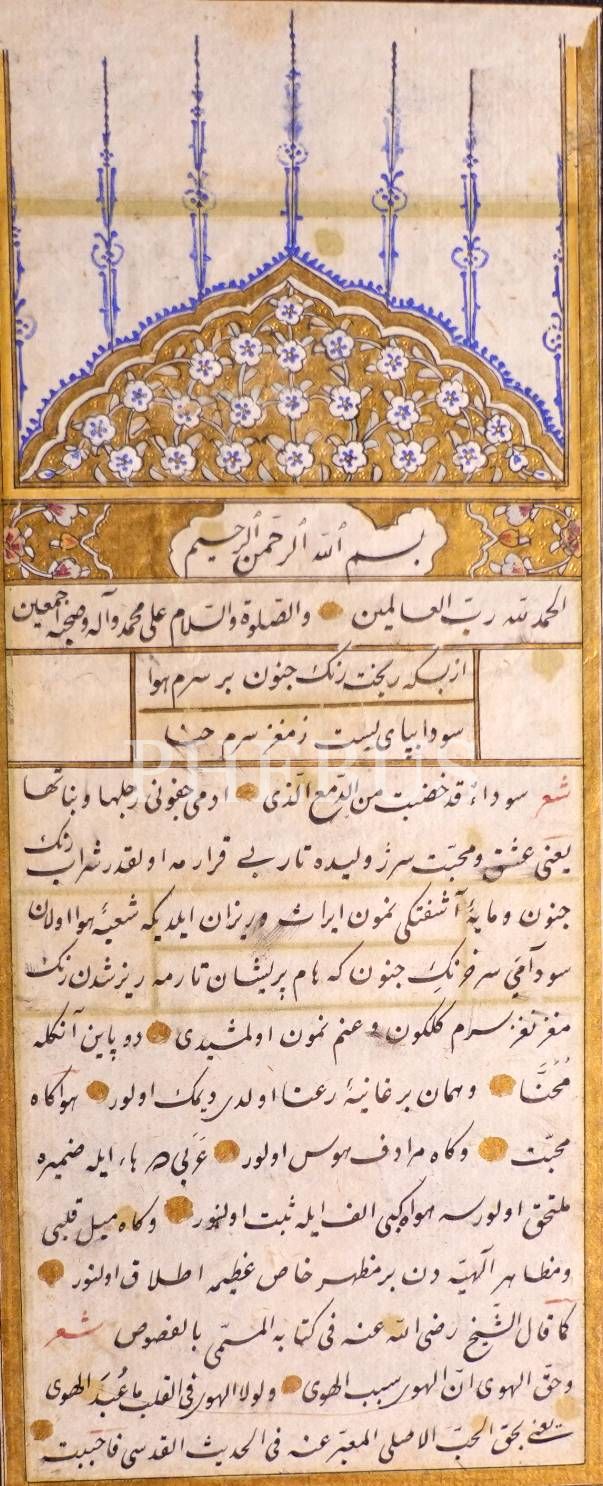 بسم الله الرحمن الرحيم
الحمد لله رب العالمين والصلوة والسلام على محمد وآله وصحبه اجمعين
از بسكه ريخت رنك جنون بر سرم هوا
سودا بپاى ليست ز مغز سرم حنا
شعر سوداء قد خضبت من الدمع الذى ادمى جفونى رجلها وبناتها
يعنى عشق ومحبت سر ژوليده تار بى قرارمه اولقدر شراب رنك
جنون ومايۀ آشفتكى نمون ايراث وريزان ايلديكه شعبۀ هوا اولان
سوداى سر خرنك جنون كه هام پريشان تارمه ريز شدن رنك
مغز نغز سرم كلكون وعنم نمون اولمشيدى دو پاين آنكله
مُحَنَّا وهمان بر غانيۀ رعنا اولدى ديمك اولور هوا كاه
محبت وكاه مرادف هوس اولور عَرَبى در هاء ايله ضميره
ملتحق اولورسه هواه كبى الف ايله ثبت اولنور وكاه ميل قلبى
ومظاهر آلهيه دن بر مظهر خاص عظيمه اطلاق اولنور
كما قال الشيخ رضى الله عنه فى كتابه المسمى بالفصوص شعر
وحق الهوى ان الهوى سبب الهوى ولولا الهوى فى القلب ما عُبدَ الهوى
يعنى بحق الحب الاصلى المعبر عنه فى الحديث القدسى فاحببت
PHEBUS